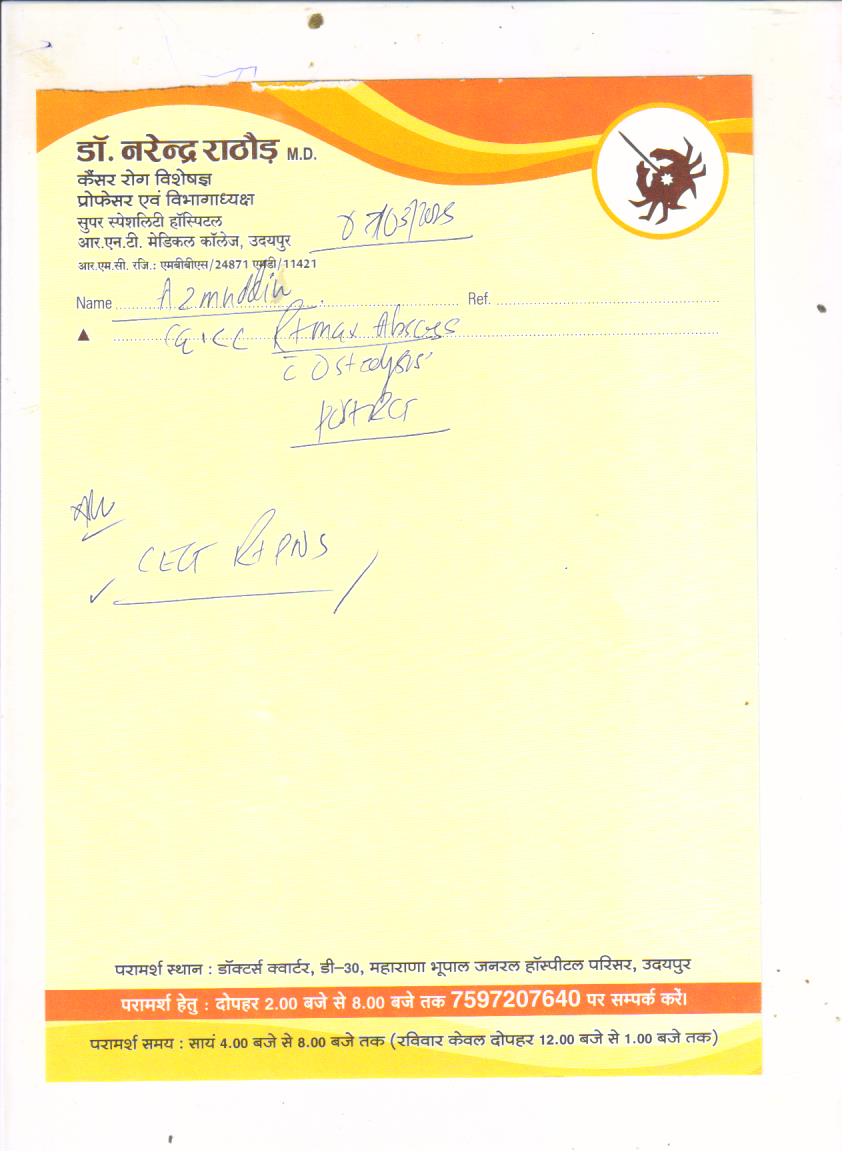 डॉ. नरेन्द्र राठौड़ M.D.
कैंसर रोग विशेषज्ञ
प्रोफेसर एवं विभागाध्यक्ष
सुपर स्पेशलिटी हॉस्पिटल
आर.एन.टी. मेडिकल कॉलेज, उदयपुर
आर.एम.सी. रजि.: एमबीबीएस/24871 एमडी/11421
Name Azmuddin Ref.
Rt max Abscess
Post RCT
Rt PNS
परामर्श स्थान : डॉक्टर्स क्वार्टर, डी-30, महाराणा भूपाल जनरल हॉस्पीटल परिसर, उदयपुर
परामर्श हेतु : दोपहर 2.00 बजे से 8.00 बजे तक 7597207640 पर सम्पर्क करें।
परामर्श समय : सायं 4.00 बजे से 8.00 बजे तक (रविवार केवल दोपहर 12.00 बजे से 1.00 बजे तक)